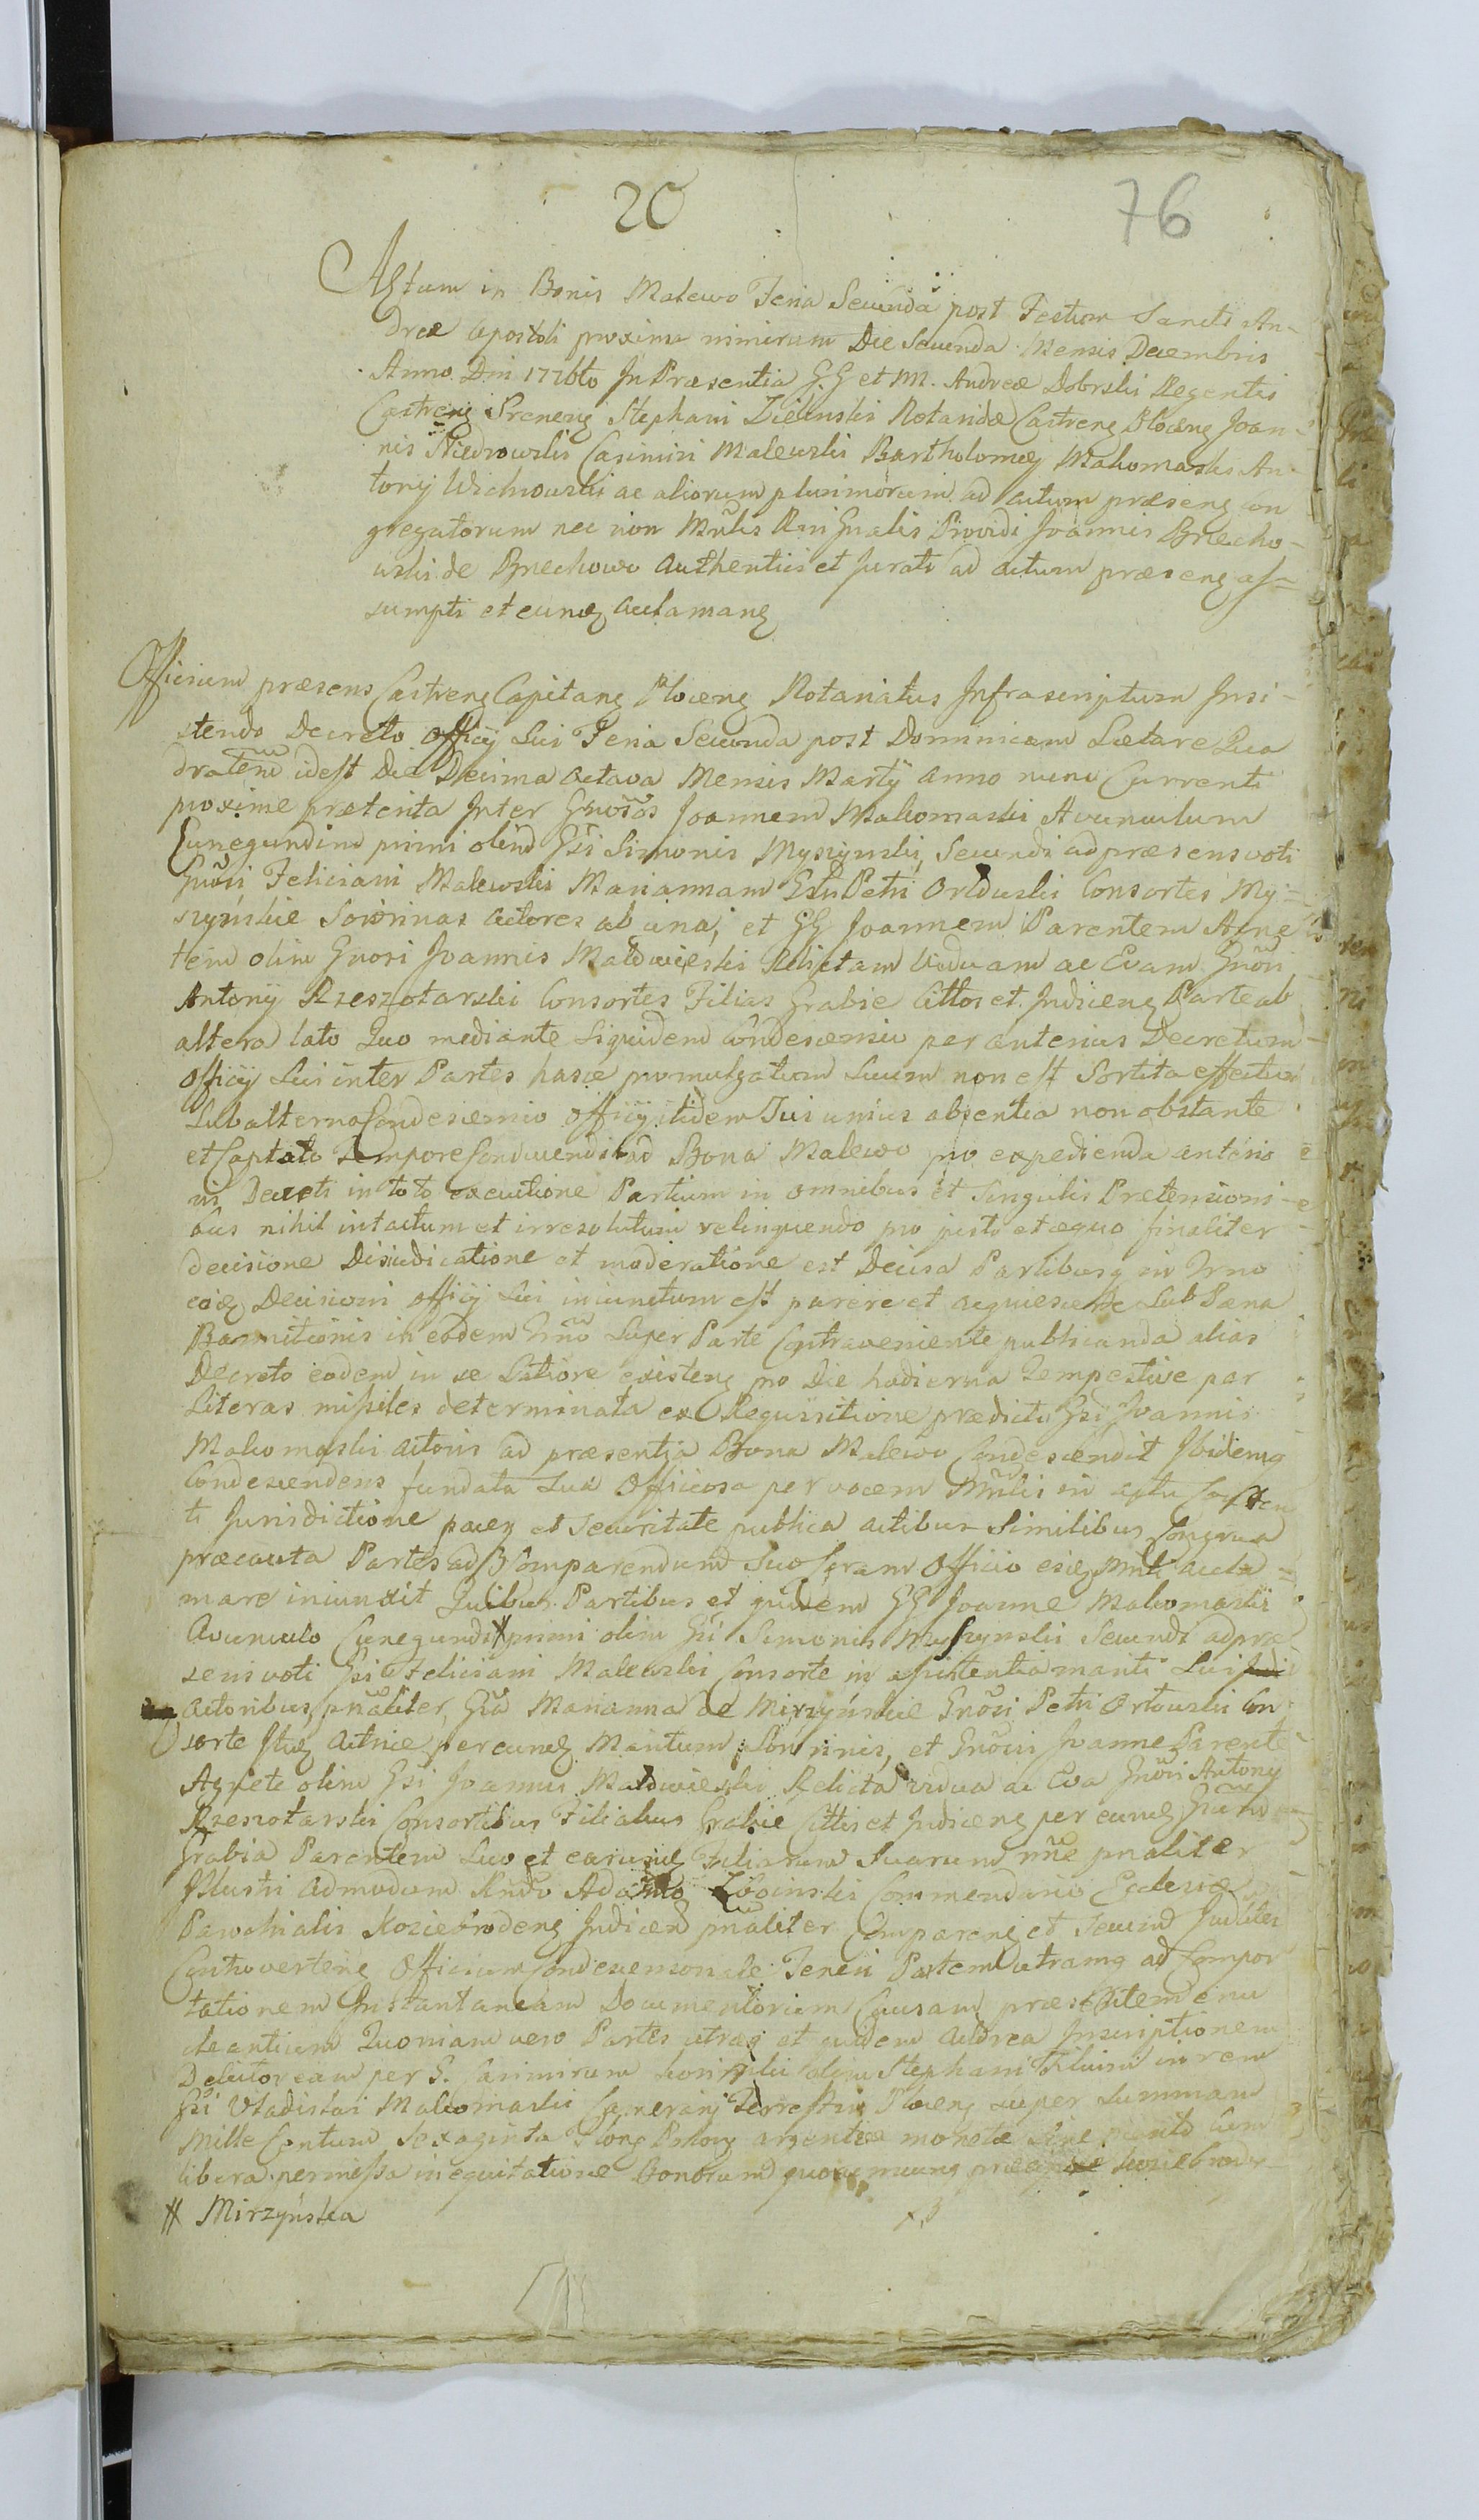 20
76
Actum in Bonis Malewo Feria Secunda post Festum Sancti An-
dreæ Apostoli proxima nimirum Die Secunda Mensis Decembris
Anno Dni 1776to In Præsentia G.G et M. Andreæ Dobrski Regentis
Castreng Sreneng Stephani Zielinski Notarida Castreng Ploceng Joan-
nis Niedrowski Casimiri Malewski Bartholomeÿ Makomaski An-
tonÿ Wichowski ac aliorum plurimorum ad actum præseng con
gregatorum nec non Mnlis Rni Gnalis Providi Joannis Brzecho-
wski de Brzechowo Authentici et Jurati ad actum præseng as-
sumpti et eundg aclamang
Officium præsens Castreng Capitang Ploceng Notariatus Infrascriptum Insi-
stendo Decreto Officÿ Sui Feria Secunda post Dominicam Lætare Qua
dratem idest Die Decima Octava Mensis Martÿ Anno nunc Currenti
proxime præterita Inter Gnosos Joannem Makomaski Avunculum
Cunegundim primi olim Gsi Simonis Myszynski, Secundi ad præsens voti
Gnosi Feliciani Malewski Mariannam Gsi Petri Ortowski Consortes My-
szyńskie Sorórinas Actores ab una, et GG Joannem Parentem Agne
tem olim Gnosi Joannis Małowieski Relictam Viduam ac Evam Gnosi
Antonÿ Rzeszotarski Consortes Filias Grabie Cittos et Judiceng Parte ab
altera lato Quo mediante Siquidem Condescensio per anterius Decretum
Officÿ Sui inter Partes hasce promulgatum Suum non est Sortita effectum
Subalterna Condescensio Officÿ itidem Sui unius absentia non obstante
et Captato Tempore Conducendi ad Bona Malewo pro expedienda anterio
ris Decreti in toto executione Partium in omnibus et Singulis Pretensioni-
bus nihil intactum et irresolutum relinquendo pro justo et æquo finaliter
decisione Disiudicatione et moderatione est Decisa Partibusq in Trno
eidg Decisioni Officÿ Sui iniunctum est parere et acquiescere Sub Pæna
Bannitionis in eodem Trno Super Parte Contraveniente publicanda alias
Decreto eodem in se Latiore existeng pro Die hodierna Tempestive per
Literas missiles determinata ex Requisitione prædicti Gsi Joannis
Makomaski Actoris ad præsentia Bona Malewo Condescendit Ibidemq
Condescendens fundata Sua Officiosa per vocem Mnlis in actu
ti Jurisdictione paceg et Securitate publica actibus Similibus Congrua
præcauta Partes ad Comparendum Suo Coram Officio eidg Mnli acla-
mare iniunxit Quibus Partibus et quidem GG Joanne Makomaski
Avunculo Cunegundi # primi olim Gsi Simonis Myszynski Secundi ad præ
sens voti Gsi Feliciani Malewski Consorte in assistentia mariti Sui
Actoribus pnaliter, Gsa Marianna de Mirzyńskie Gnosi Petri Ortowski Con-
sorte Actrice per eundg Maritum Sororinis, et Gnosis Joanne Parente
Agnete olim Gsi Joannis Małowieski Relicta vidua ac Eva Gnosi Antonÿ
Rzeszotarski Consortibus Filiabus Grabie Cittis et Judiceng per eundg Gsum
Grabia Parentem Suo et earundg Filiarum Suarum nne pnaliter
Illustri Admodum Rndo Adamo Commendario Ecclesiæ
Parochialis Koziebrodeng Judicem pnaliter Compareng et Secum Judiliter
Controverteng Officium Condescensoriale Teneri Partem utramq ad Compor
tationem Instantaneam Documentorum Causam præsentem enu
cleantium Quoniam vero Partes utræq et quidem Actorea Inscriptionem
Debitoream per G. Casimirum olim Stephani Filium in rem
Gsi Vladislai Makomaski Camerarÿ Terrestris Ploceng Super Summam
Mille Centum Sexaginta Flong Polong argenteæ monetæ Sine cum
libera permissa inequitatione Bonorum quorumcung
# Mirzyńska